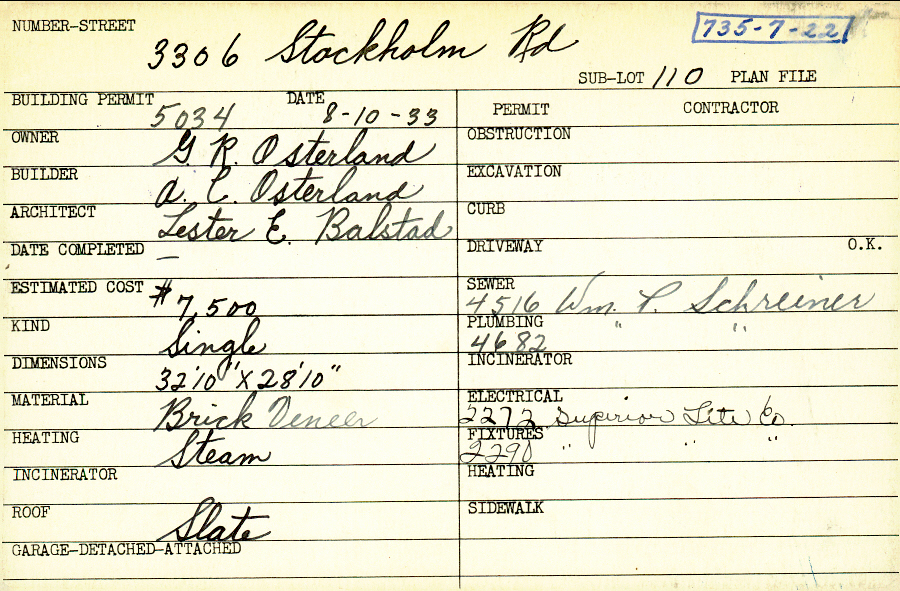 NUMBER-STREET 3306 Stockholm Rd 735-7-22
SUB-LOT 110 PLAN FILE
BUILDING PERMIT 5034 DATE 8-10-33
OWNER G. R. Osterland
BUILDER A. C. Osterland
ARCHITECT Lester E. Balstad
DATE COMPLETED —
ESTIMATED COST #7,500
KIND Single
DIMENSIONS 32'10" X 28'10"
MATERIAL Brick Veneer
HEATING Steam
INCINERATOR
ROOF Slate
GARAGE-DETACHED-ATTACHED
PERMIT CONTRACTOR
OBSTRUCTION
EXCAVATION
CURB
DRIVEWAY O.K.
SEWER 4516 Wm. P. Schreiner
PLUMBING 4682 " "
INCINERATOR
ELECTRICAL 2272 Superior Lite Co.
FIXTURES 2290 " " "
HEATING
SIDEWALK